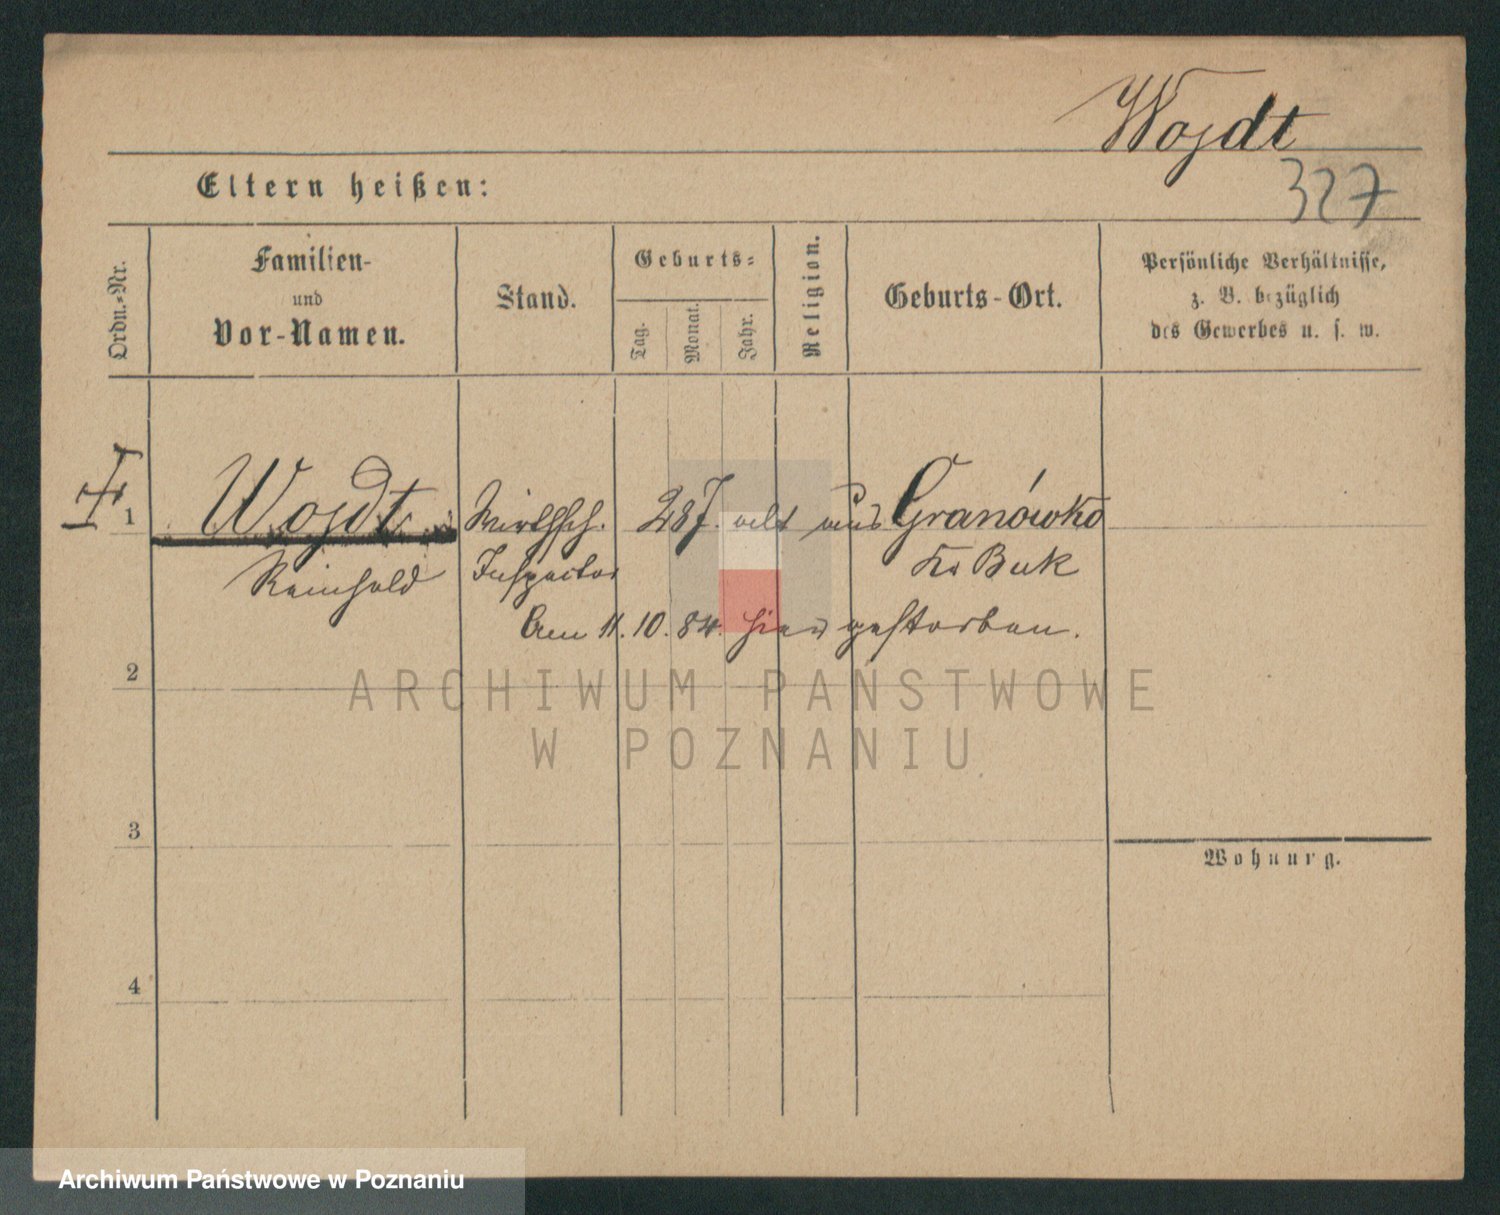 Wojdt
327
Eltern heißen:
Ordn.-Nr.
Familien-
und
Vor-Namen.
Stand.
Geburts-
Tag.
Monat.
Jahr.
Religion.
Geburts-Ort.
Persönliche Verhältnisse,
z. B. bezüglich
des Gewerbes u. s. w.
1 Wojdt Wirthsch. 28 J. alt aus Granówko
Reinhold Inspector Kr Buk
Am 11. 10. 84. hier gestorben.
2
ARCHIWUM PAŃSTWOWE
W POZNANIU
3
Wohnung.
4
Archiwum Państwowe w Poznaniu